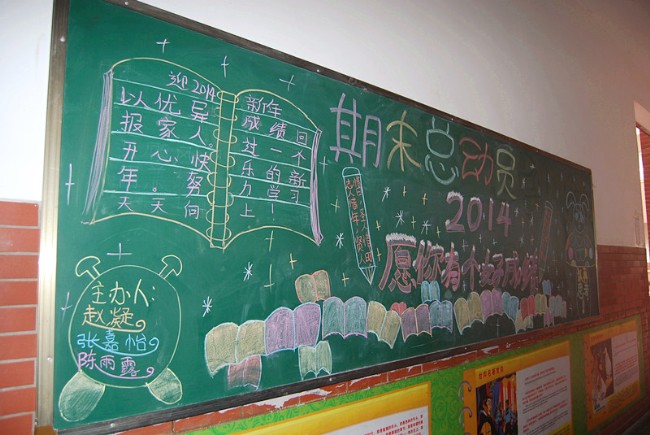 迎2014 新年
以优异 成绩回
报家人 过一个
开心.快 乐的新
年。努 力学习
天天向 上!
期末总动员
2014
愿你有个好成绩
主办人:
赵凝
张嘉怡
陈雨露